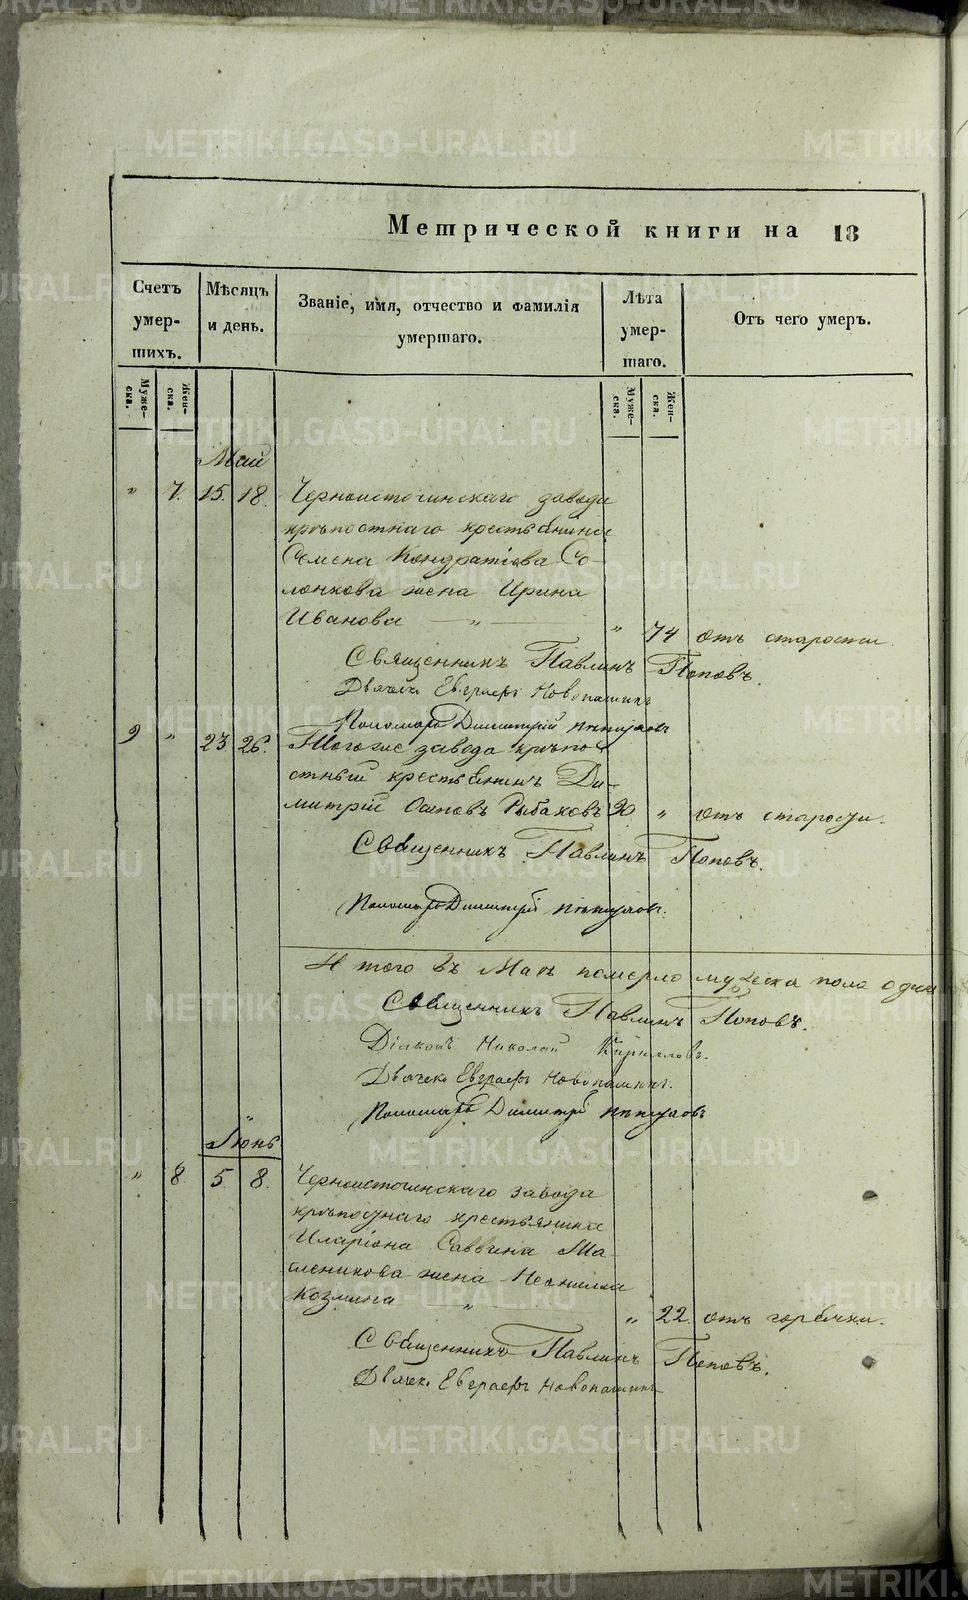 Метрической книги на 18
Счетъ умер- шихъ.
Мѣсяцъ и день.
Званіе, имя, отчество и фамилія умершаго.
Лѣта умер- шаго.
Отъ чего умеръ.
Муже- ска.
Жен- ска.
Муже- ска.
Жен- ска.
Май
" 7. 15. 18. Черноисточинскаго завода
крѣпостнаго крестьянина
Семена Кондратіева Со-
лонкова жена Ирина
Иванова — " — " 74 отъ старости.
Священникъ Павлинъ Поповъ.
Дьячекъ Евграфъ Новопашинъ
Пономарь Димитрій
9 " 23 26. Тогоже завода крѣпо-
стный крестьянинъ Ди-
митрій Осиповъ Рыбаковъ 90. " отъ старости.
Священникъ Павлинъ Поповъ.
Пономарь Димитрій
Итого въ Маѣ померло мужеска пола один
Священникъ Павлинъ Поповъ.
Діаконъ Николай Кирилловъ.
Дьячекъ Евграфъ Новопашинъ.
Пономарь Димитрій
Іюнь
" 8. 5. 8. Черноисточинскаго завода
крѣпостнаго крестьянина
Иларіона Саввина Ма-
сленикова жена Неонилла
Козмина — " — " 22. отъ горячки.
Священникъ Павлинъ Поповъ.
Дьячекъ Евграфъ Новопашинъ
METRIKI.GASO-URAL.RU